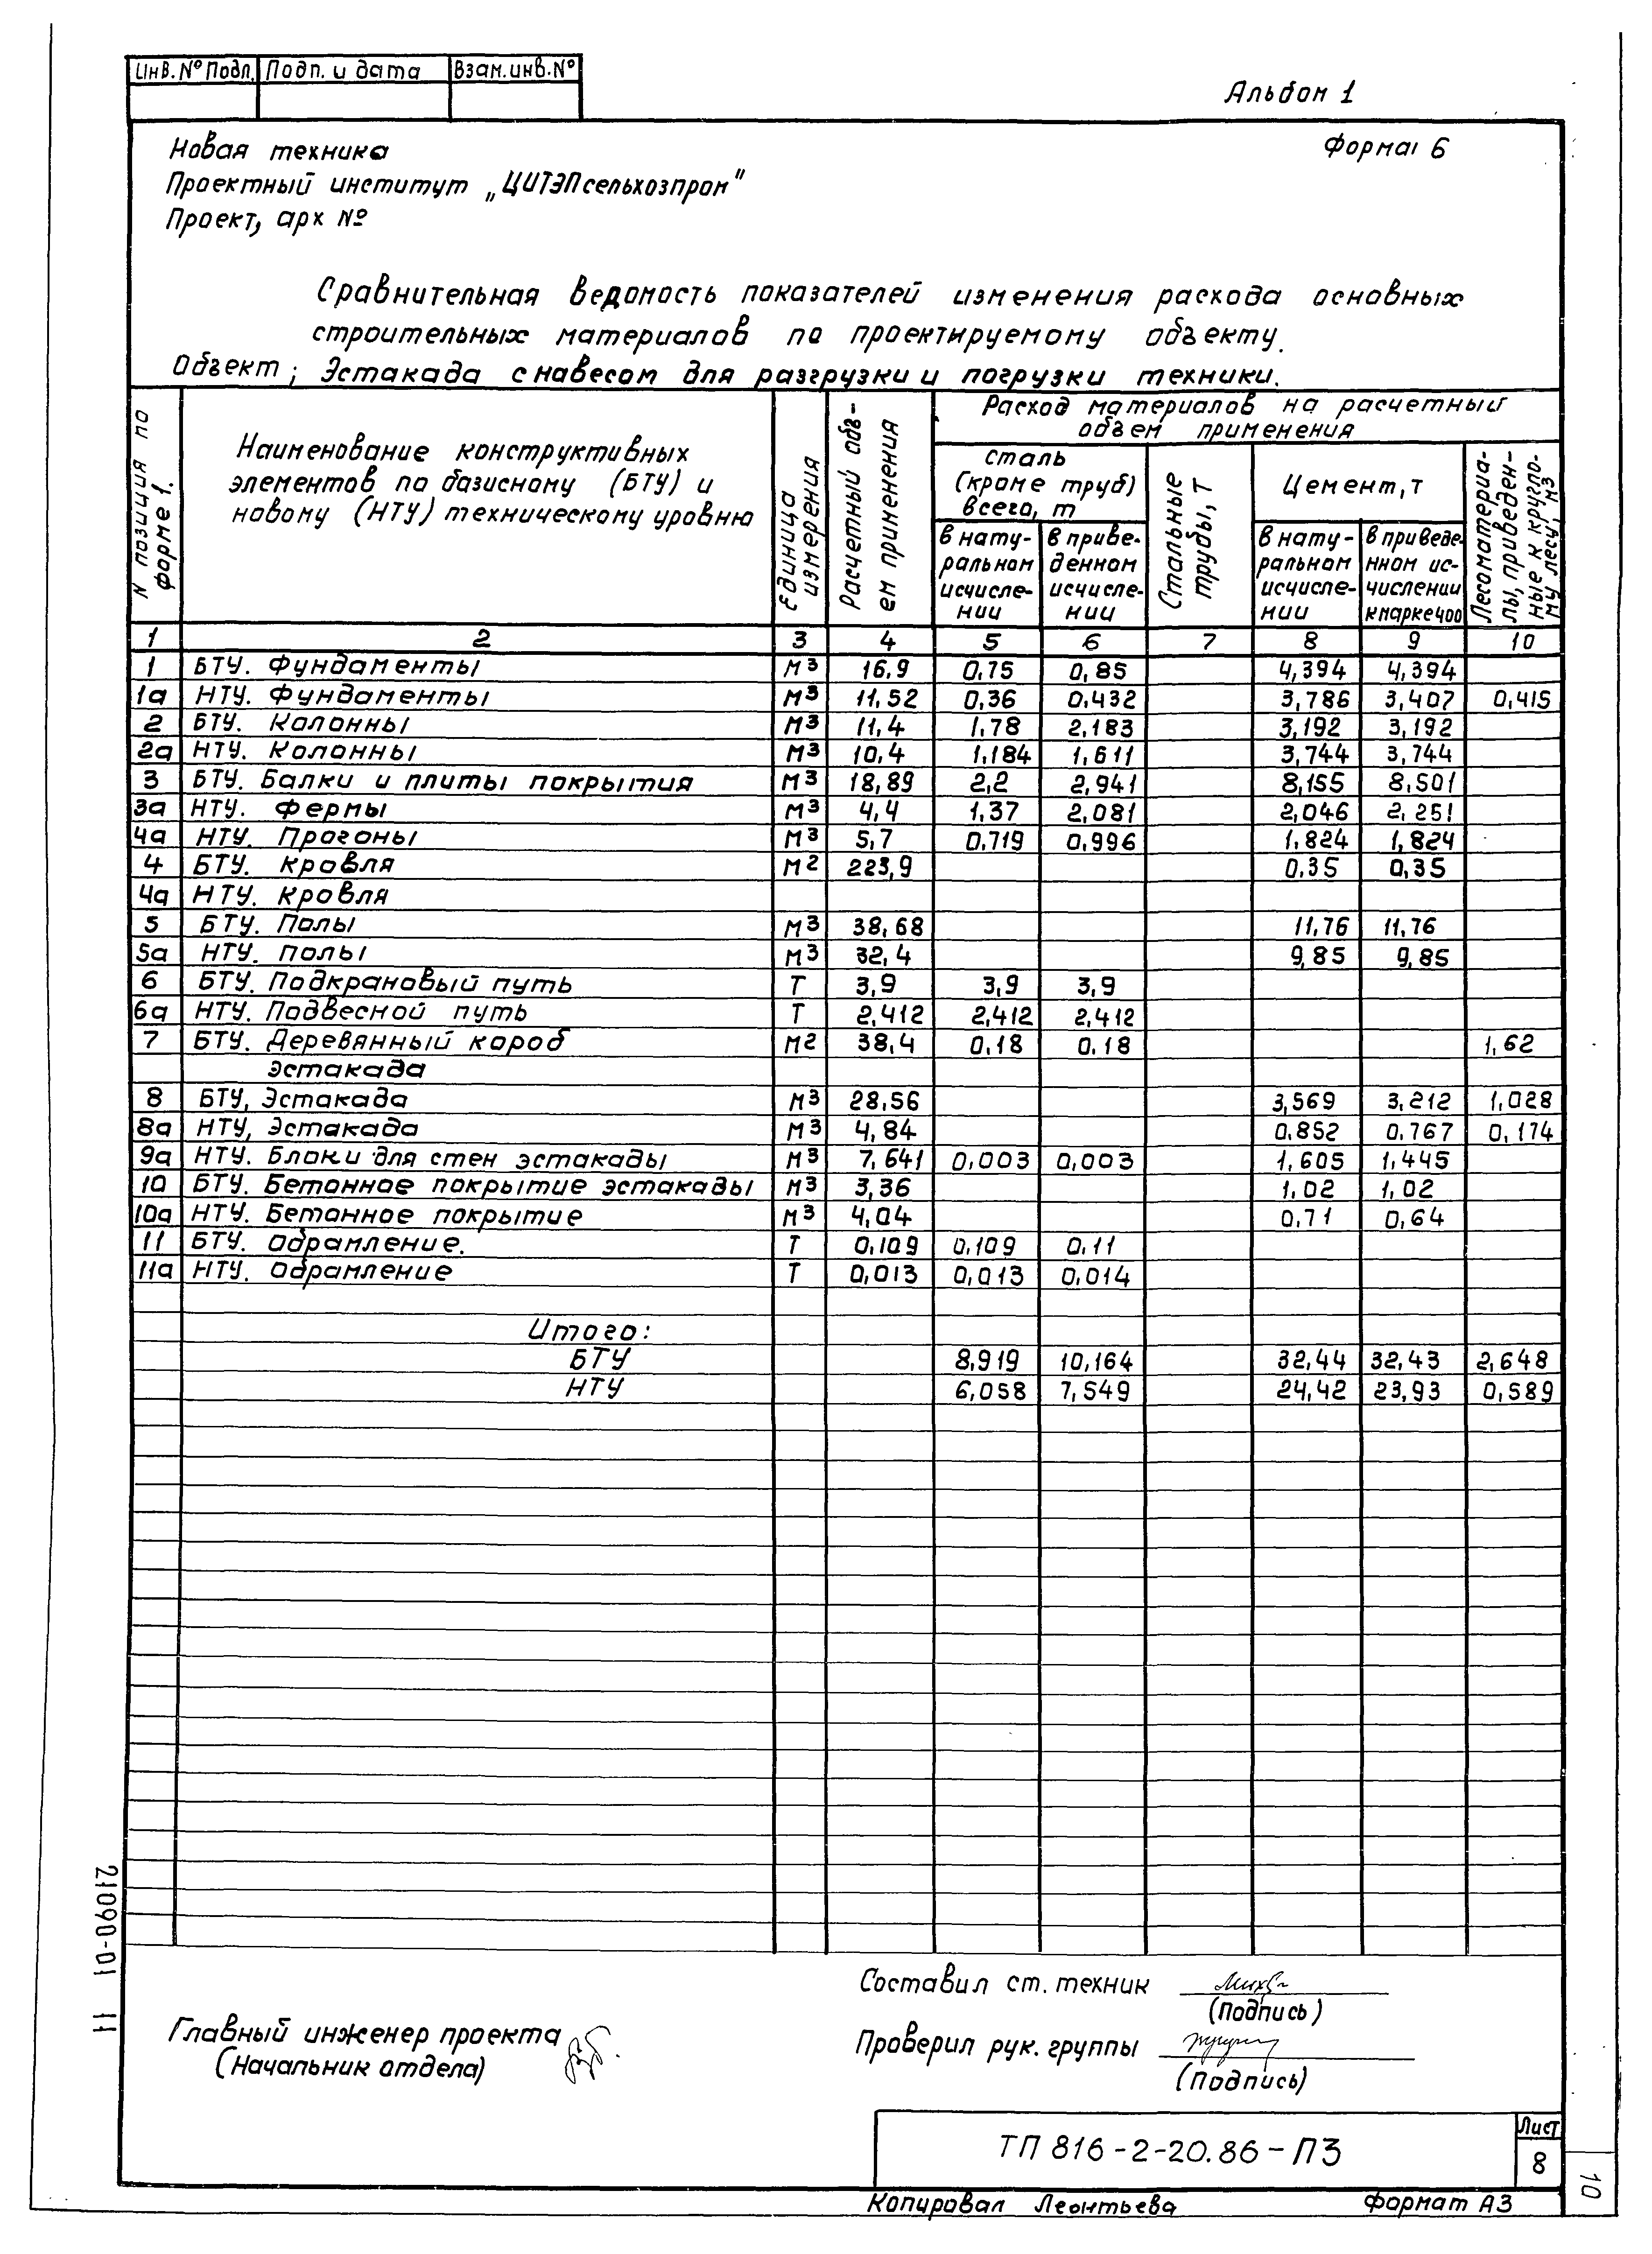 Инв. № Подл. Подп. и дата Взам. инв. №
Альбом 1
Форма 6
Новая техника
Проектный институт „ЦИТЭПсельхозпром"
Проект, арх №
Сравнительная ведомость показателей изменения расхода основных
строительных материалов по проектируемому объекту.
Объект; Эстакада с навесом для разгрузки и погрузки техники.
N позиция по форме 1.
Наименование конструктивных
элементов по базисному (БТУ) и
новому (НТУ) техническому уровню
Единица измерения
Расчетный объ-
ем применения
Расход материалов на расчетный
объем применения
сталь
(кроме труб)
всего, т
в нату-
ральном
исчисле-
нии
в приве-
денном
исчисле-
нии
Стальные
трубы, Т
Цемент, т
в нату-
ральном
исчисле-
нии
в приведе-
нном ис-
числении
к марке 400
Лесоматериа-
лы, приведен-
ные к кругло-
му лесу, м3
1 2 3 4 5 6 7 8 9 10
1 БТУ. Фундаменты м3 16,9 0,75 0,85 4,394 4,394
1а НТУ. Фундаменты м3 11,52 0,36 0,432 3,786 3,407 0,415
2 БТУ. Колонны м3 11,4 1,78 2,183 3,192 3,192
2а НТУ. Колонны м3 10,4 1,184 1,611 3,744 3,744
3 БТУ. Балки и плиты покрытия м3 18,89 2,2 2,941 8,155 8,501
3а НТУ. Фермы м3 4,4 1,37 2,081 2,046 2,251
4а НТУ. Прогоны м3 5,7 0,719 0,996 1,824 1,824
4 БТУ. Кровля м2 223,9 0,35 0,35
4а НТУ. Кровля
5 БТУ. Полы м3 38,68 11,76 11,76
5а НТУ. Полы м3 32,4 9,85 9,85
6 БТУ. Подкрановый путь Т 3,9 3,9 3,9
6а НТУ. Подвесной путь Т 2,412 2,412 2,412
7 БТУ. Деревянный короб м2 38,4 0,18 0,18 1,62
эстакада
8 БТУ, Эстакада м3 28,56 3,569 3,212 1,028
8а НТУ, Эстакада м3 4,84 0,852 0,767 0,174
9а НТУ. Блоки для стен эстакады м3 7,641 0,003 0,003 1,605 1,445
10 БТУ. Бетонное покрытие эстакады м3 3,36 1,02 1,02
10а НТУ. Бетонное покрытие м3 4,04 0,71 0,64
11 БТУ. Обрамление. Т 0,109 0,109 0,11
11а НТУ. Обрамление Т 0,013 0,013 0,014
Итого:
БТУ 8,919 10,164 32,44 32,43 2,648
НТУ 6,058 7,549 24,42 23,93 0,589
21090-01 11
Составил ст. техник
(Подпись)
Главный инженер проекта
(Начальник отдела)
Проверил рук. группы
(Подпись)
ТП 816-2-20.86-ПЗ
Лист
8
10
Копировал Леонтьева Формат А3